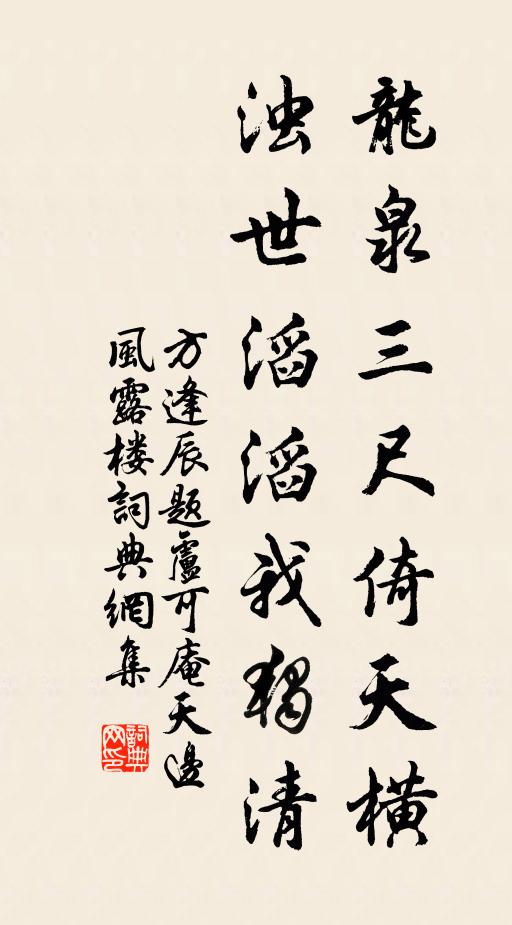 龍泉三尺倚天橫
浊世滔滔我獨清
方逢辰題盧可庵天邊
風露楼詞典網集
詞典网印